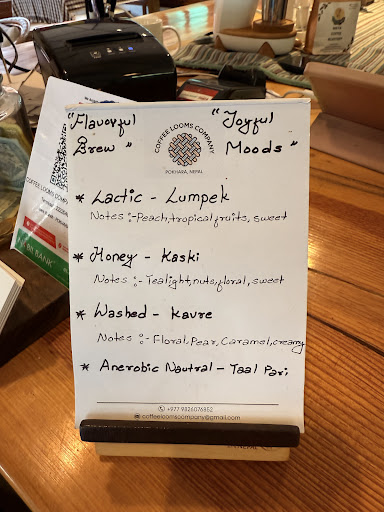 "Flavorful
Brew"
"Joyful
Moods"
COFFEE LOOMS COMPANY
POKHARA, NEPAL
* Lactic - Lumpek
Notes :- Peach, tropical fruits, sweet
* Honey - Kaski
Notes :- Tealight, nuts, floral, sweet
* Washed - Kavre
Notes :- Floral, Pear, Caramel, creamy
* Anerobic Nautral - Taal Pari,
+977 9826076852
coffeeloomscompany@gmail.com
COFFEE LOOMS
BANK